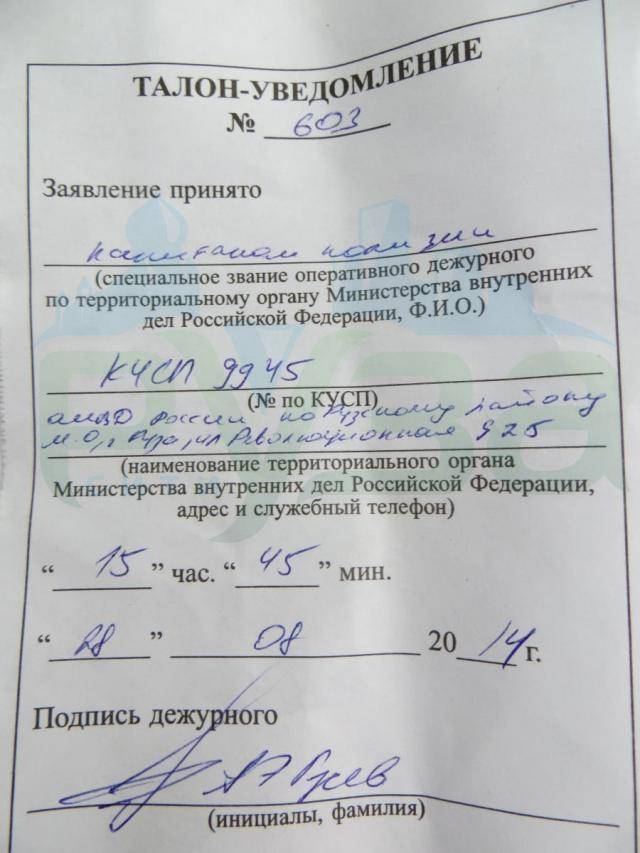 ТАЛОН-УВЕДОМЛЕНИЕ
№ 603
Заявление принято
капитаном полиции
(специальное звание оперативного дежурного
по территориальному органу Министерства внутренних
дел Российской Федерации, Ф.И.О.)
КУСП 9945
(№ по КУСП)
ОМВД России по Рузскому району
М.О., г. Руза, ул Революционная д 25
(наименование территориального органа
Министерства внутренних дел Российской Федерации,
адрес и служебный телефон)
“ 15 ” час. “ 45 ” мин.
“ 28 ” 08 20 14 г.
Подпись дежурного
(инициалы, фамилия)